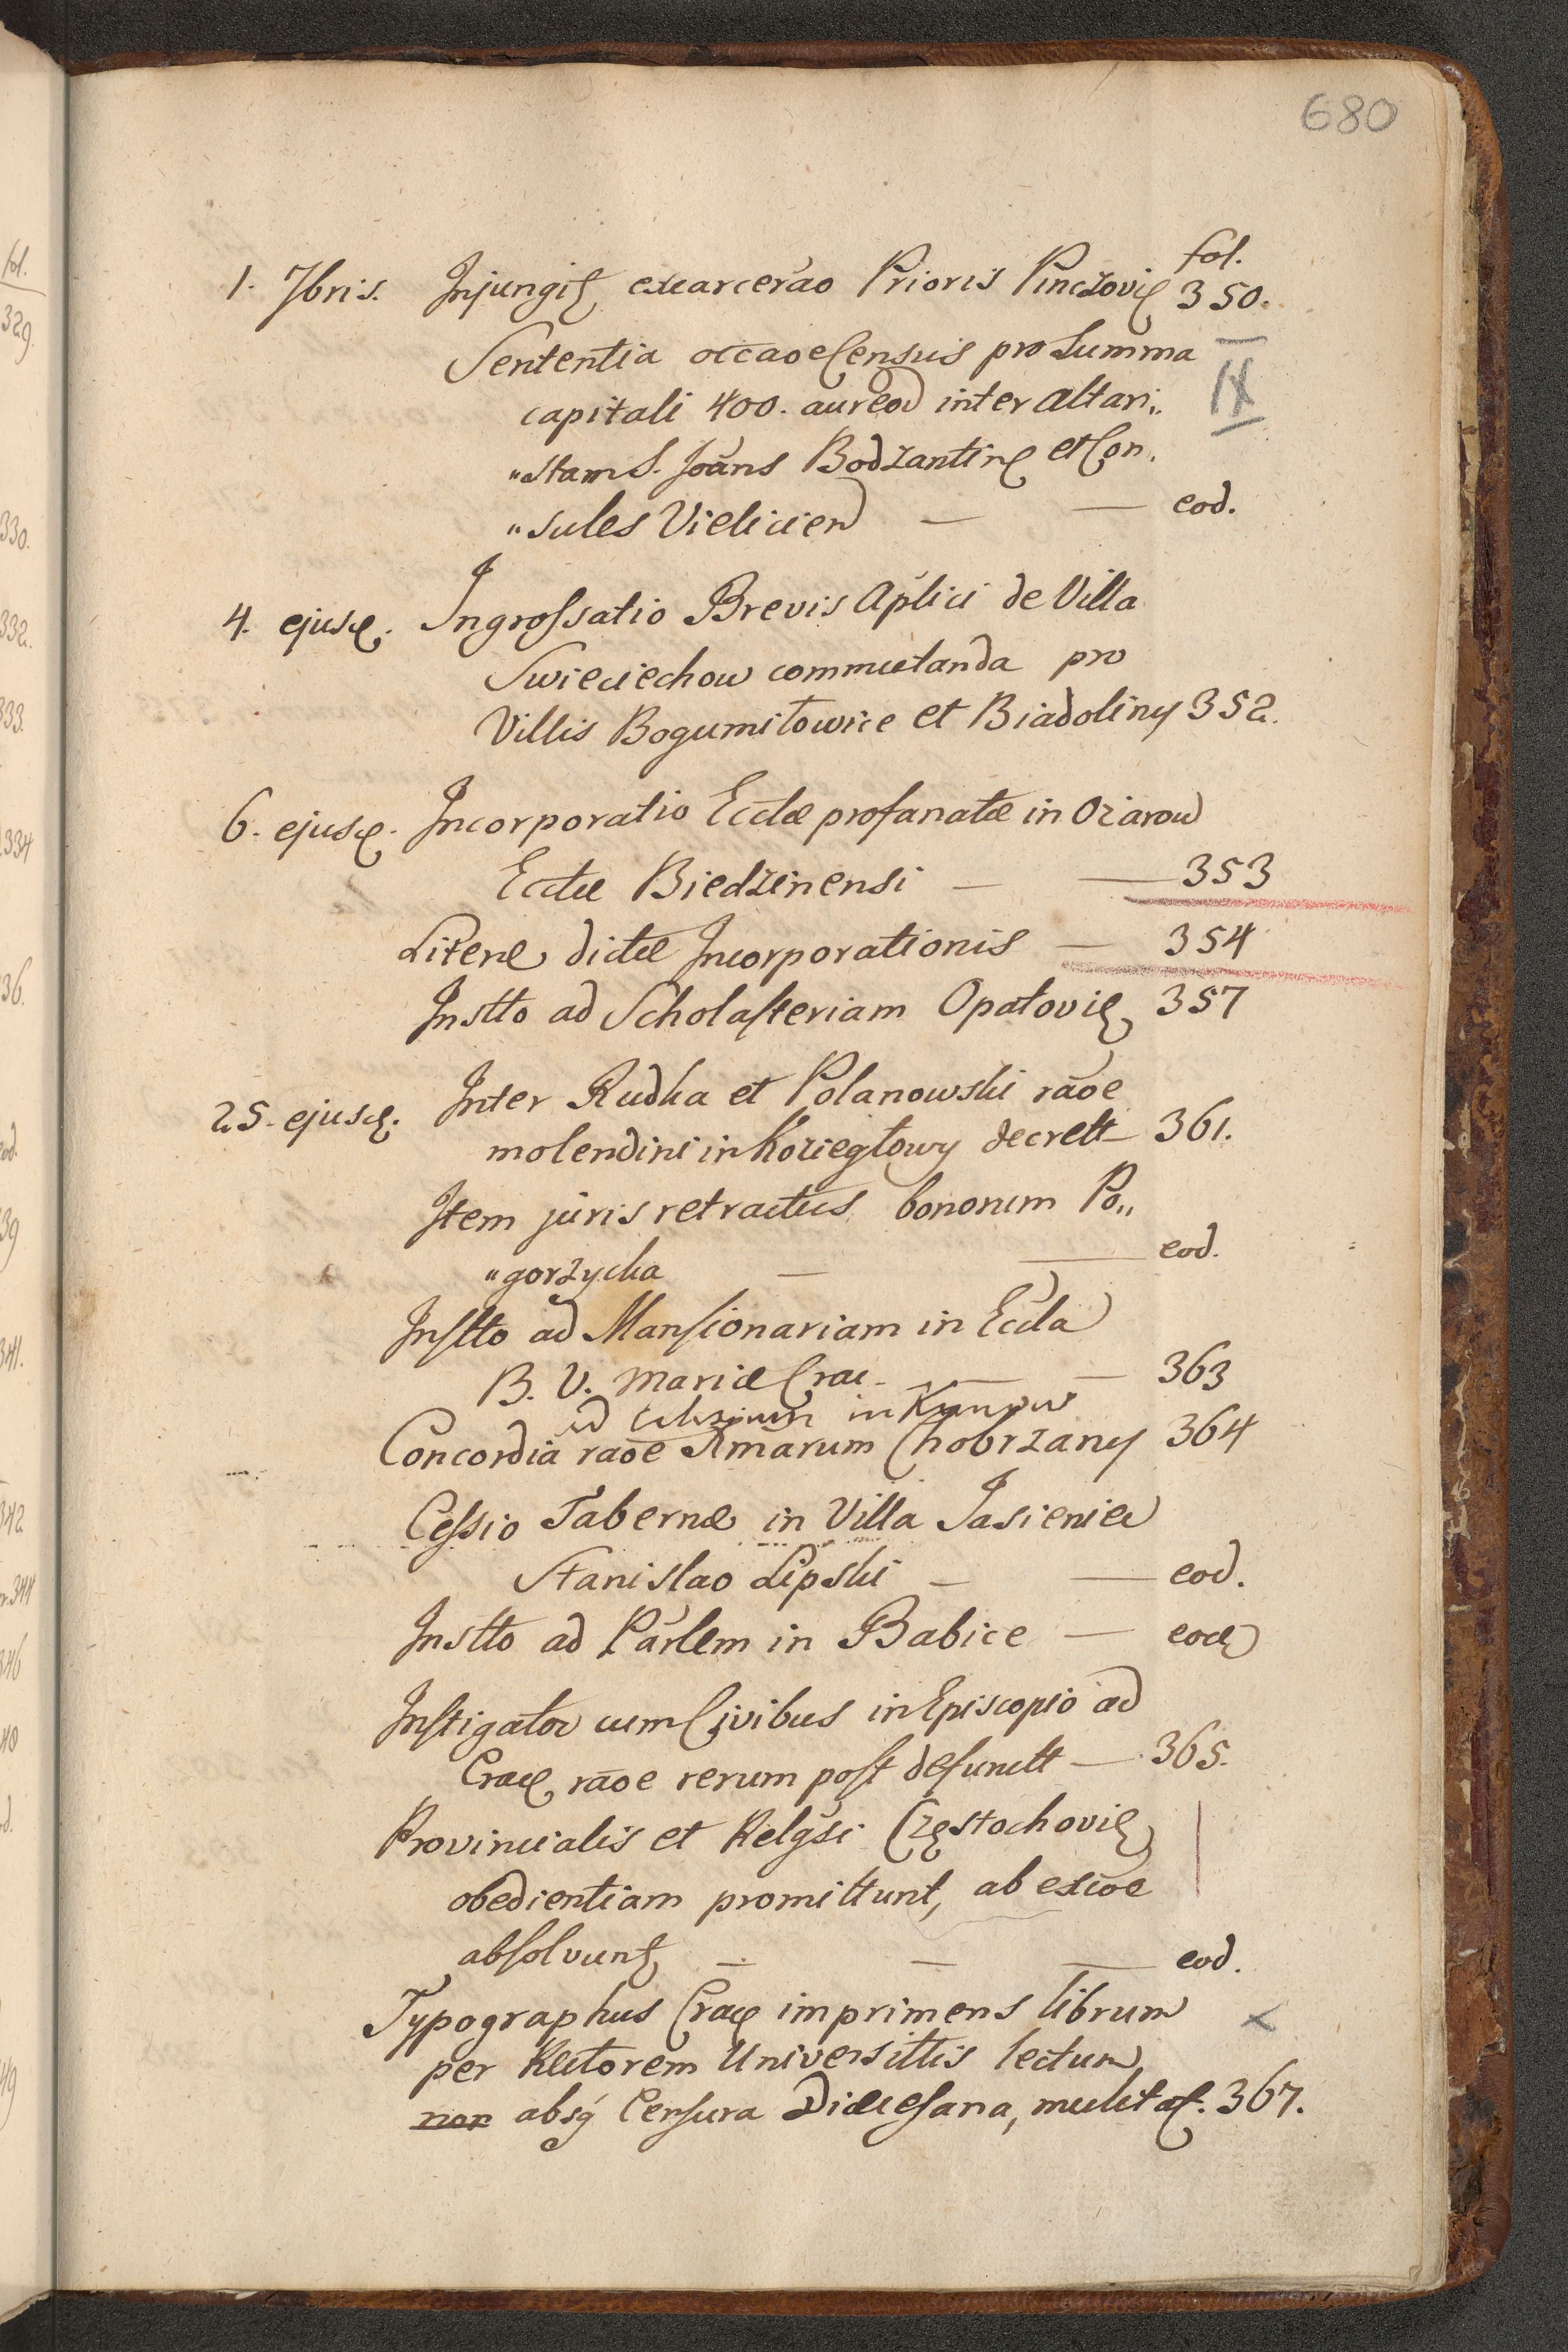 680
fol.
1. 7bris. Injungit̃ excarcerãō Prioris Pinczovien̄ 350.
Sententia occãōe Census pro Summa
IX
capitali 400. aureoȓ inter Altari„
„stam S. Joãns Bodzantin̄ et Con„
„sules Vieliciens̄ — — eod.
4. ejusd̄. Ingrossatio Brevis Aplici de Villa
Swieciechow commutanda pro
Villis Bogumiłowice et Biadoliny 352.
6. ejusd̄. Incorporatio Ecclæ profanatæ in Oziarow
Ecclæ Biedzinensi — — 353
Literæ dictæ Incorporationis — 354
Instto ad Scholasteriam Opatovien̄ 357
25. ejusd̄. Inter Rudka et Polanowski rãõe
molendini in Koziegłowy decrett — 361.
Item juris retractus bonorum Po„
„gorzycka — — eod.
Instto ad Mansionariam in Eccla
B. V. Mariæ Crac. — — 363
Concordia rãõe Sum̃arum Chobrzany 364
Cessio Tabernæ in Villa Jasienied
Stanislao Lipski — — eod.
Instto ad Parlem in Babice — eod̄
Instigator cum Civibus in Episcopio ad
Crac̄ rãõe rerum post defunctt — 365.
Provincialis et Relg̃si Częstochovien̄
obedientiam promittunt, ab excõe
absolvunt̃ — — — eod.
Typographus Crac̄ imprimens librum
per Rectorem Universittis lectum
non absq́ Censura Diæcesana, mulctat̃. 367.